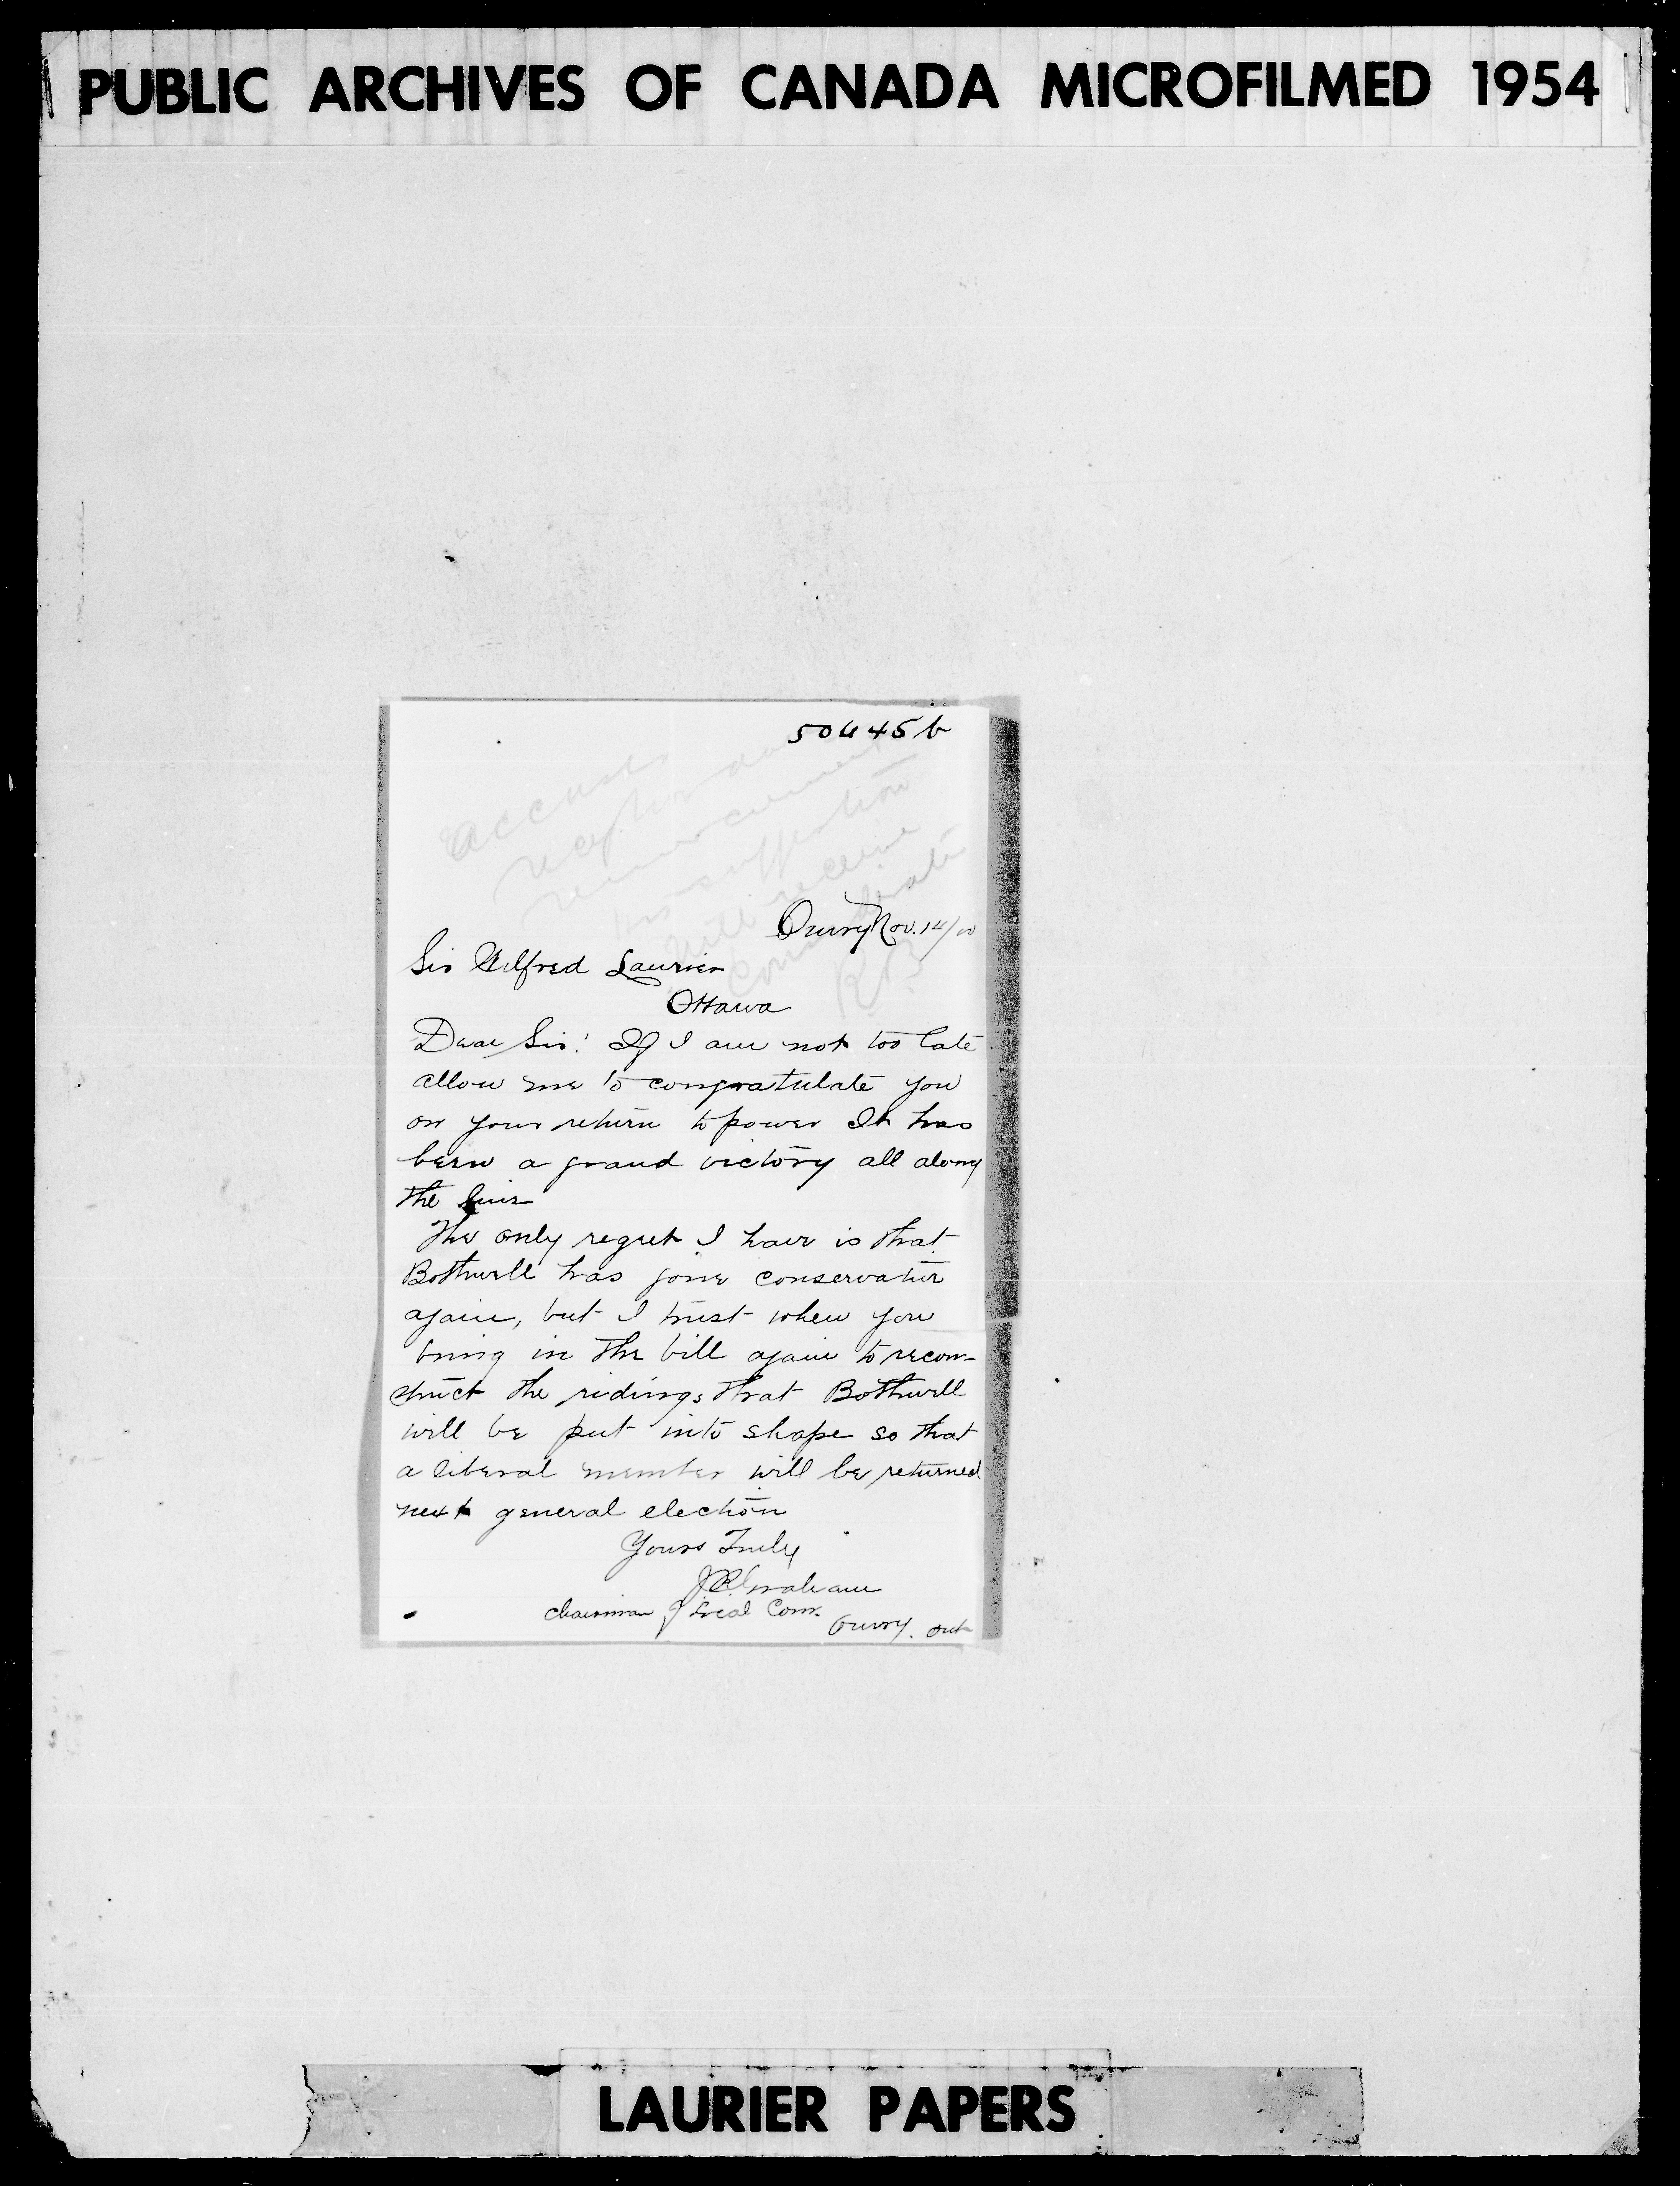 PUBLIC ARCHIVES OF CANADA MICROFILMED 1954
Nov. 14/00
Sir Wilfred Laurier
Ottawa
Dear Sir! If I am not too late
allow me to congratulate you
on your return to power It has
been a grand victory all along
the line
The only regret I have is that
Bothwell has gone conservative
again, but I trust when you
bring in the bill again to recon-
struct the ridings that Bothwell
will be put into shape so that
a liberal member will be returned
next general election
Yours Truly
Graham
Chairman of Local Com.
Ont
LAURIER PAPERS